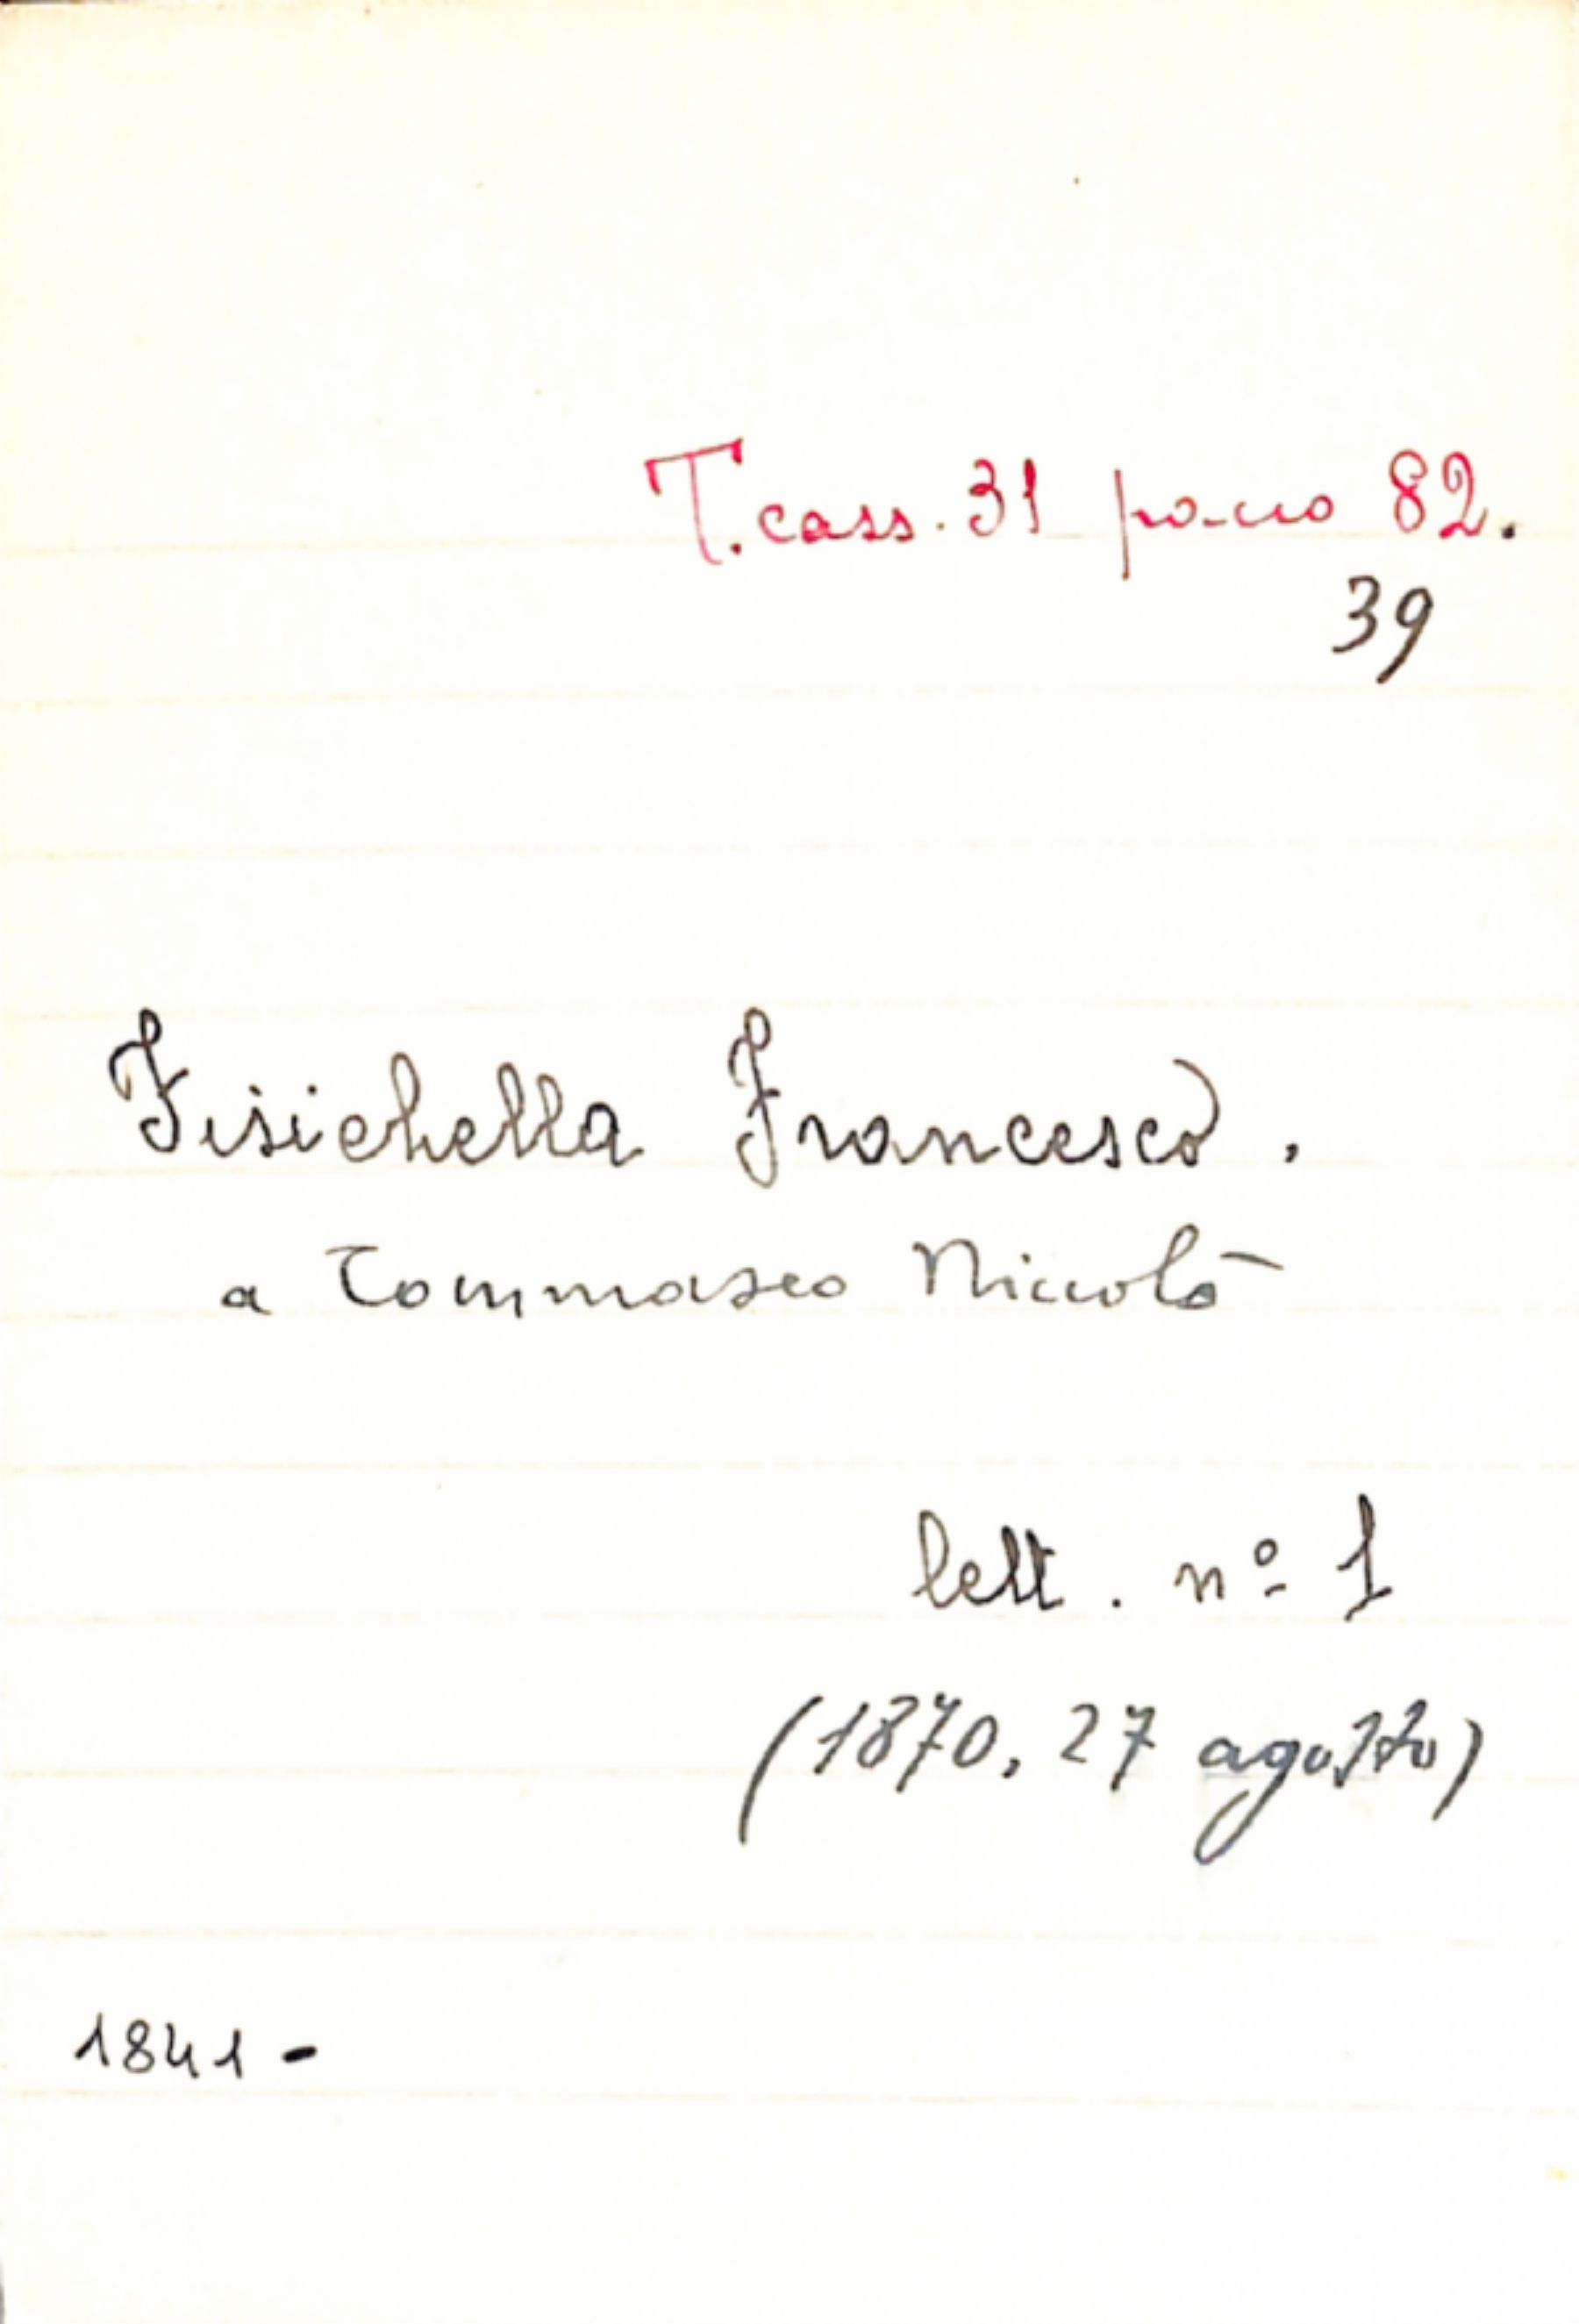 T. cass. 31 pa-cco 82.
39
Fisichella Francesco.
a Tommaseo Niccolò
lett. nº 1
(1870, 27 agosto)
1841-